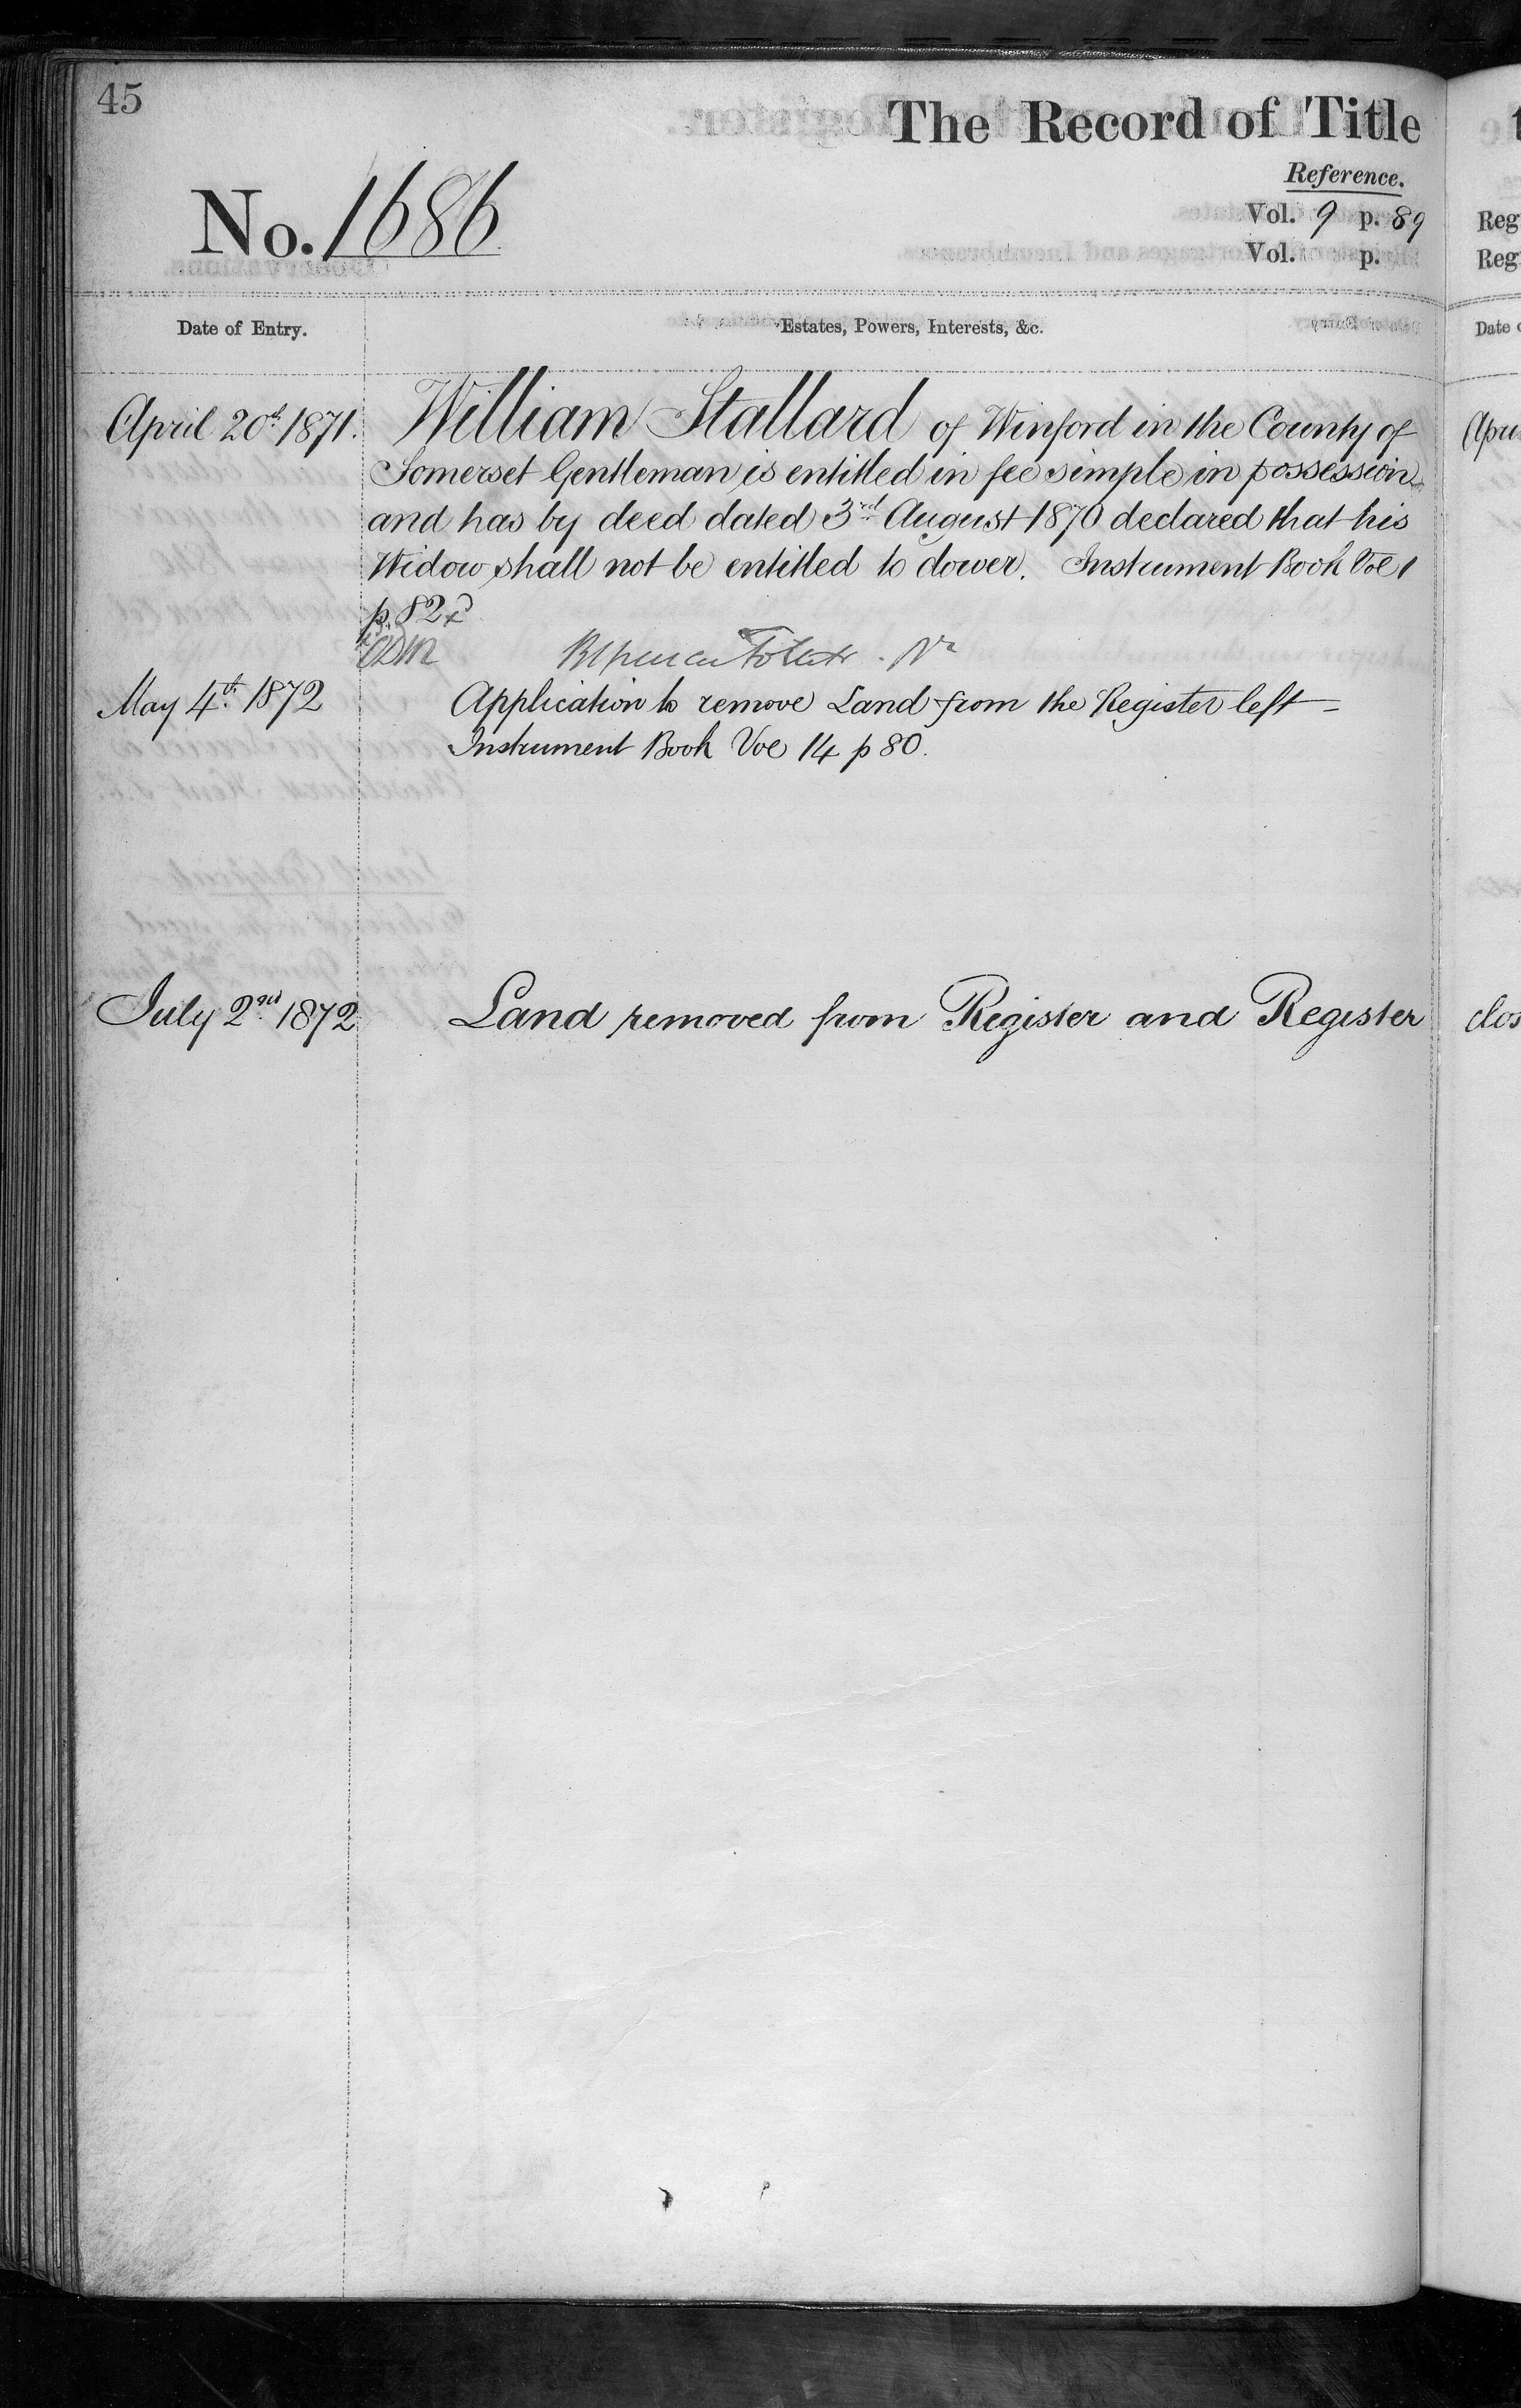 45
The Record of Title
Reference.
No. 1686
Vol. 9 p. 89
Vol. p.
Date of Entry.
Estates, Powers, Interests, &c.
April 20th 1871. William Stallard of Winford in the County of
Somerset Gentleman is entitled in fee simple in possession
and has by deed dated 3rd August 1870 declared that his
Widow shall not be entitled to dower. Instrument Book Vol 1
p. 82
May 4th 1872 Application to remove Land from the Register left =
Instrument Book Vol 14 p 80.
July 2nd 1872 Land removed from Register and Register
Reg
Reg
Date
clos